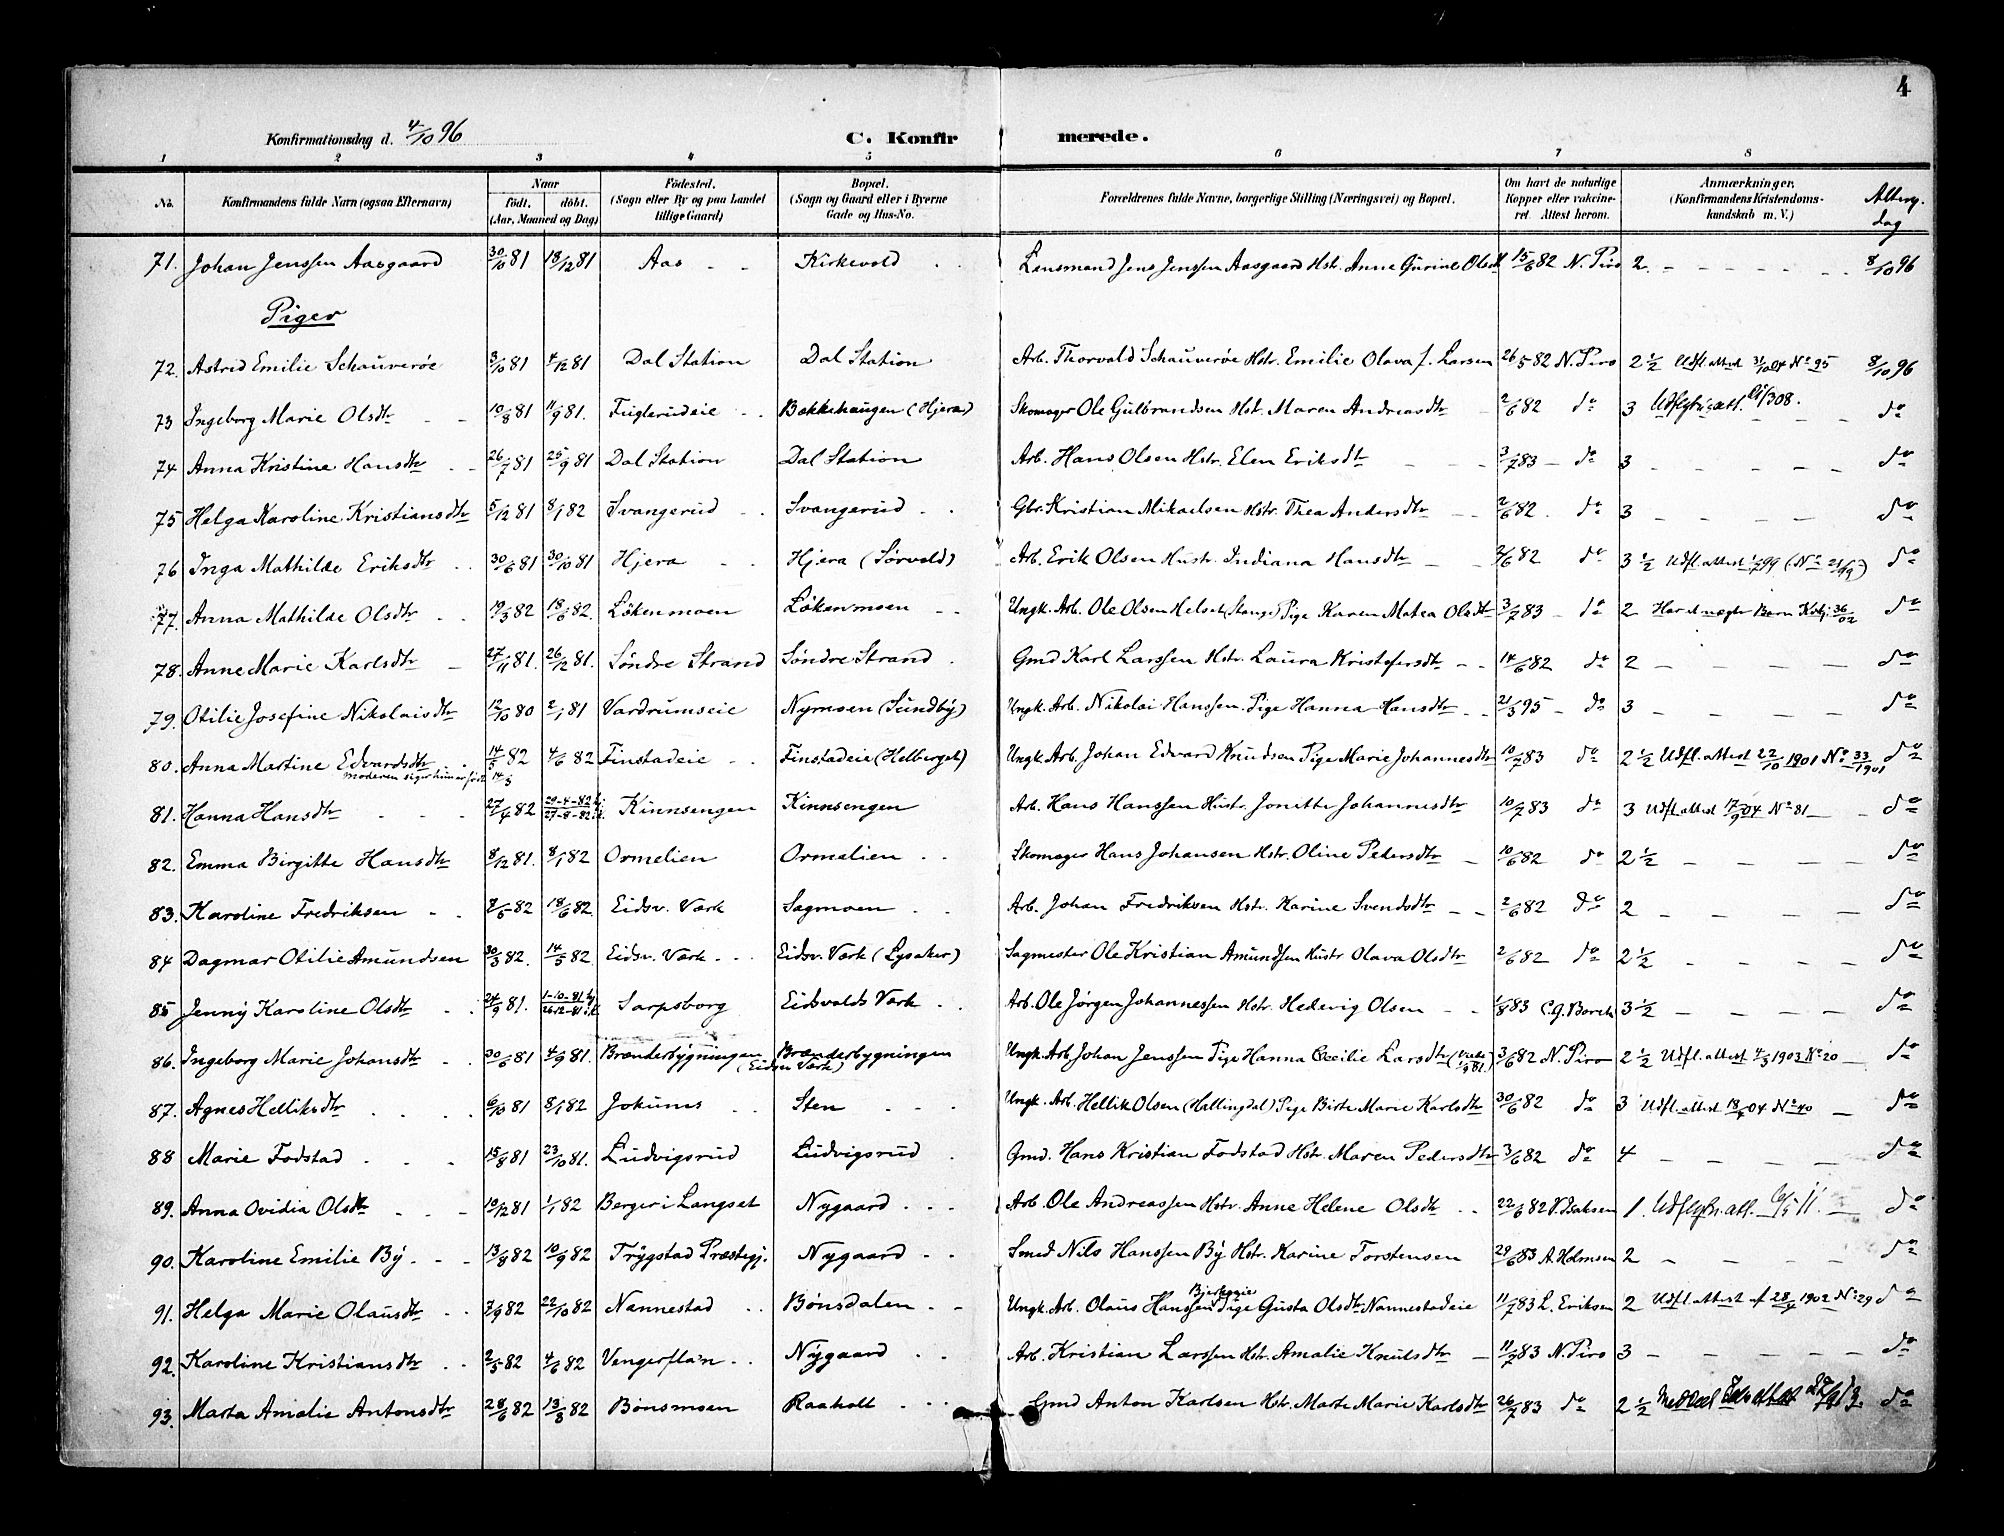 4
Konfirmationsdag d. 4/10 96 C. Konfirmerede.
1 2 3 4 5 6 7 8
No. Konfirmandens fulde Navn (ogsaa Efternavn) Naar født. døbt. (Aar, Maaned og Dag) Fødested. (Sogn eller By og paa Landet tillige Gaard) Bopæl. (Sogn og Gaard eller i Byerne Gade og Hus-No. Forældrenes fulde Navne, borgerlige Stilling (Næringsvei) og Bopæl. Om havt de naturlige Kopper eller vakcineret. Attest herom. Anmærkninger. (Konfirmandens Kristendomskundskab m. V.) Altergdag
71. Johan Jenssen Aasgaard 30/10 81 18/12 81 Aas Kirkevold Lensmand Jens Jenssen Aasgaard Hstr. Anne Gurine Olsdt 15/6 82 N. Piro 2 8/10 96
Piger
72. Astrid Emilie Schauverøe 3/10 81 4/12 81 Dal Station Dal Station Arb. Thorvald Schauverøe Hstr. Emilie Olava f. Larsen 26/5 82 N. Piro 2 1/2 Udfl. attest 31/10 04 No 95 8/10 96
73 Ingeborg Marie Olsdtr 10/8 81 11/9 81. Fuglerudeie Bakkehaugen (Hjera) Skomager Ole Gulbrandsen Hstr. Maren Andreasdtr 2/6 82 do 3 Udflytn.att. do
74 Anna Kristine Hansdtr 26/7 81 25/9 81 Dal Station Dal Station Arb. Hans Olsen Hstr. Elen Eriksdtr 3/7 83 do 3 do
75 Helga Karoline Kristiansdtr 5/12 81 8/1 82 Svangerud Svangerud Gbr. Kristian Mikaelsen Hstr. Thea Andersdtr 2/6 82. do 3 do
76 Inga Mathilde Eriksdtr 30/6 81 30/10 81 Hjera Hjera (Sørvold) Arb. Erik Olsen Hustr. Indiana Hansdtr 2/6 82 do 3 1/2 Udfl. attest 1/7 99 (No 21/19) do
77. Anna Mathilde Olsdtr 19/3 82 18/6 82. Løkenmoen Løkenmoen Ungk. Arb. Ole Olsen Helset (Stange) Pige Karen Matea Olsdtr 3/7 83 do 2 Har et uægte Barn 36/02 do
78. Anne Marie Karlsdtr 27/11 81. 26/12 81. Søndre Strand Søndre Strand Gmd Karl Larssen Hstr. Laura Kristofersdtr 14/6 82 do 2 do
79. Otilie Josefine Nikolaisdtr 12/10 80 2/1 81 Vardrumseie Nymoen (Sundby) Ungk. Arb. Nikolai Hanssen. Pige Hanna Hansdtr 21/3 95 do 3 do
80. Anna Martine Edvardsdtr. 14/5 82 4/6 82 Finstadeie Finstadeie (Helberget) Ungk Arb. Johan Edvard Knudsen Pige Marie Johannesdtr 10/7 83 do 2 1/2 Udfl. attest 22/10 1901 No 33/1901 do
moderen siger hun er født 14/3
81. Hanna Hansdtr 27/4 82 29-4-82 27-8-82 Kinnsengen Kinnsengen Arb. Hans Hanssen Hustr. Jonette Johannesdtr 10/7 83 do 3 Udfl. attest 17/9 04 No 81 do
82. Emma Birgitte Hansdtr 8/12 81. 8/1 82 Ormelien Ormelien Skomager Hans Johansen Hstr. Oline Pedersdtr 10/6 82 do 2 1/2 do
83. Karoline Fredriksen 8/5 82 18/6 82. Eidsv. Værk Sagmoen Arb. Johan Fredriksen Hstr. Karine Svendsdtr 2/6 82 do 2 do
84 Dagmar Otilie Amundsen 30/3 82. 14/5 82 Eidsv. Værk Eidsv. Værk (Lysaker) Sagmester Ole Kristian Amundsen Hustr Olava Olsdtr 2/6 82 do 2 1/2 do
85 Jenny Karoline Olsdtr 24/9 81. 1-10-81 26-12-81 Sarpsborg Eidsvolds Værk Arb. Ole Jørgen Johannessen Hstr. Hedevig Olsen 1/8 83 C.G. Borch 3 1/2 do
86. Ingeborg Marie Johansdtr 30/6 81 4/9 81. Brænderbygningen (Eidsv Værk) Brænderbygningen Ungk. Arb. Johan Jenssen Pige Hanna Cecilie Larsdtr 3/6 82 N. Piro 2 1/2 Udfl. attest 4/3 1903 No 20 do
87. Agnes Helliksdtr 6/10 81 8/1 82 Jokums Sten Ungk. Arb. Hellik Olsen (Hallingdal) Pige Birte Marie Karlsdtr 30/6 82 do 3 Udfl. attest 04 No 40 do
88 Marie Fodstad 15/8 81 23/10 81. Ludvigsrud Ludvigsrud Gmd. Hans Kristian Fodstad Hstr Maren Pedersdtr 3/6 82 do 4 do
89. Anna Ovidia Olsdtr 10/12 81 1/1 82 Berger i Langset Nygaard Arb. Ole Andreassen Hstr. Anne Helene Olsdtr 22/6 82 V. Isaksen 1. Udflytn. att. do
90. Karoline Emilie By 13/8 82 10/9 82 Trygstad Præstegj. Nygaard Smed Nils Hanssen By Hstr. Karine Torstensen 29/6 83 A. Holmsen 2 do
91. Helga Marie Olausdtr 7/9 82 22/10 82 Nannestad Bønsdalen Ungk. Arb. Olaus Hanssen Bjerkeeie Pige Gusta Olsdtr Nannestadeie 11/7 83 L. Eriksen 2 Udfl. attest af 28/4 1902 No 29 do
92. Karoline Kristiansdtr 2/5 82 4/6 82 Vengerflaen Nygaard Arb. Kristian Larssen Hstr. Amalie Knutsdtr 11/7 83 N. Piro 3 do
93. Marta Amalie Antonsdtr 28/6 82 13/8 82 Bønsmoen Raaholt Gmd Anton Karlsen Hstr. Marte Marie Karlsdtr 26/7 83 do 2 1/2 do